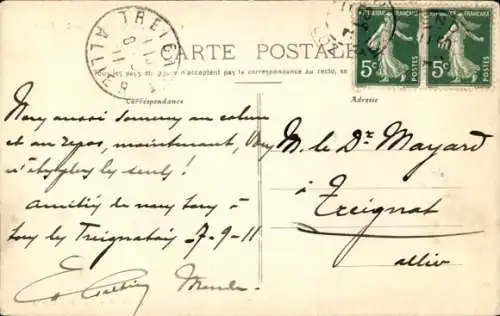 TREIGNAT
ALLIER
CARTE POSTALE
RÉPUBLIQUE FRANÇAISE
5c POSTES
5c POSTES
Tous les pays n'acceptent pas la correspondance au recto, se
Correspondance
Adresse
Nous aussi sommes au calme
et au repos, maintenant, Vous
n'êtes plus les seuls !
amitiés de nous tous à
tous les Treignatois 7-9-11
M. le Dr Mayard
à
Treignat
allier